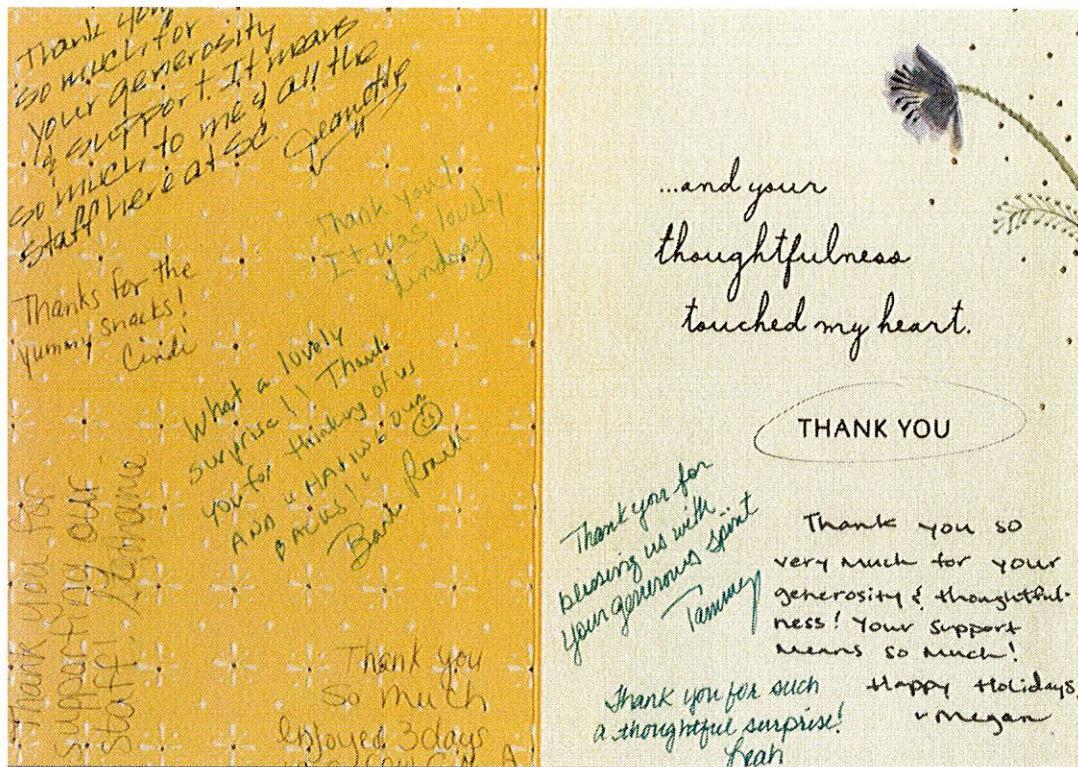 Thank you
so much, for
your generosity
& support. It means
so much to me & all the
staff here at SC. Jeanette
Thank you!
It was lovely
Lindsay
Thanks for the
yummy snacks!
Cindi
What a lovely
surprise!! Thank
you for thinking of us
AND "HAVING our
BACKS!"
Barb
Thank you for
supporting our
staff!
Thank you
So much
Enjoyed 3 days
...and your
thoughtfulness
touched my heart.
THANK YOU
Thank you for
blessing us with
your generous spirit
Tammy
Thank you so
very much for your
generosity & thoughtful-
ness! Your support
means so much!
Happy Holidays,
- Megan
Thank you for such
a thoughtful surprise!
Leah